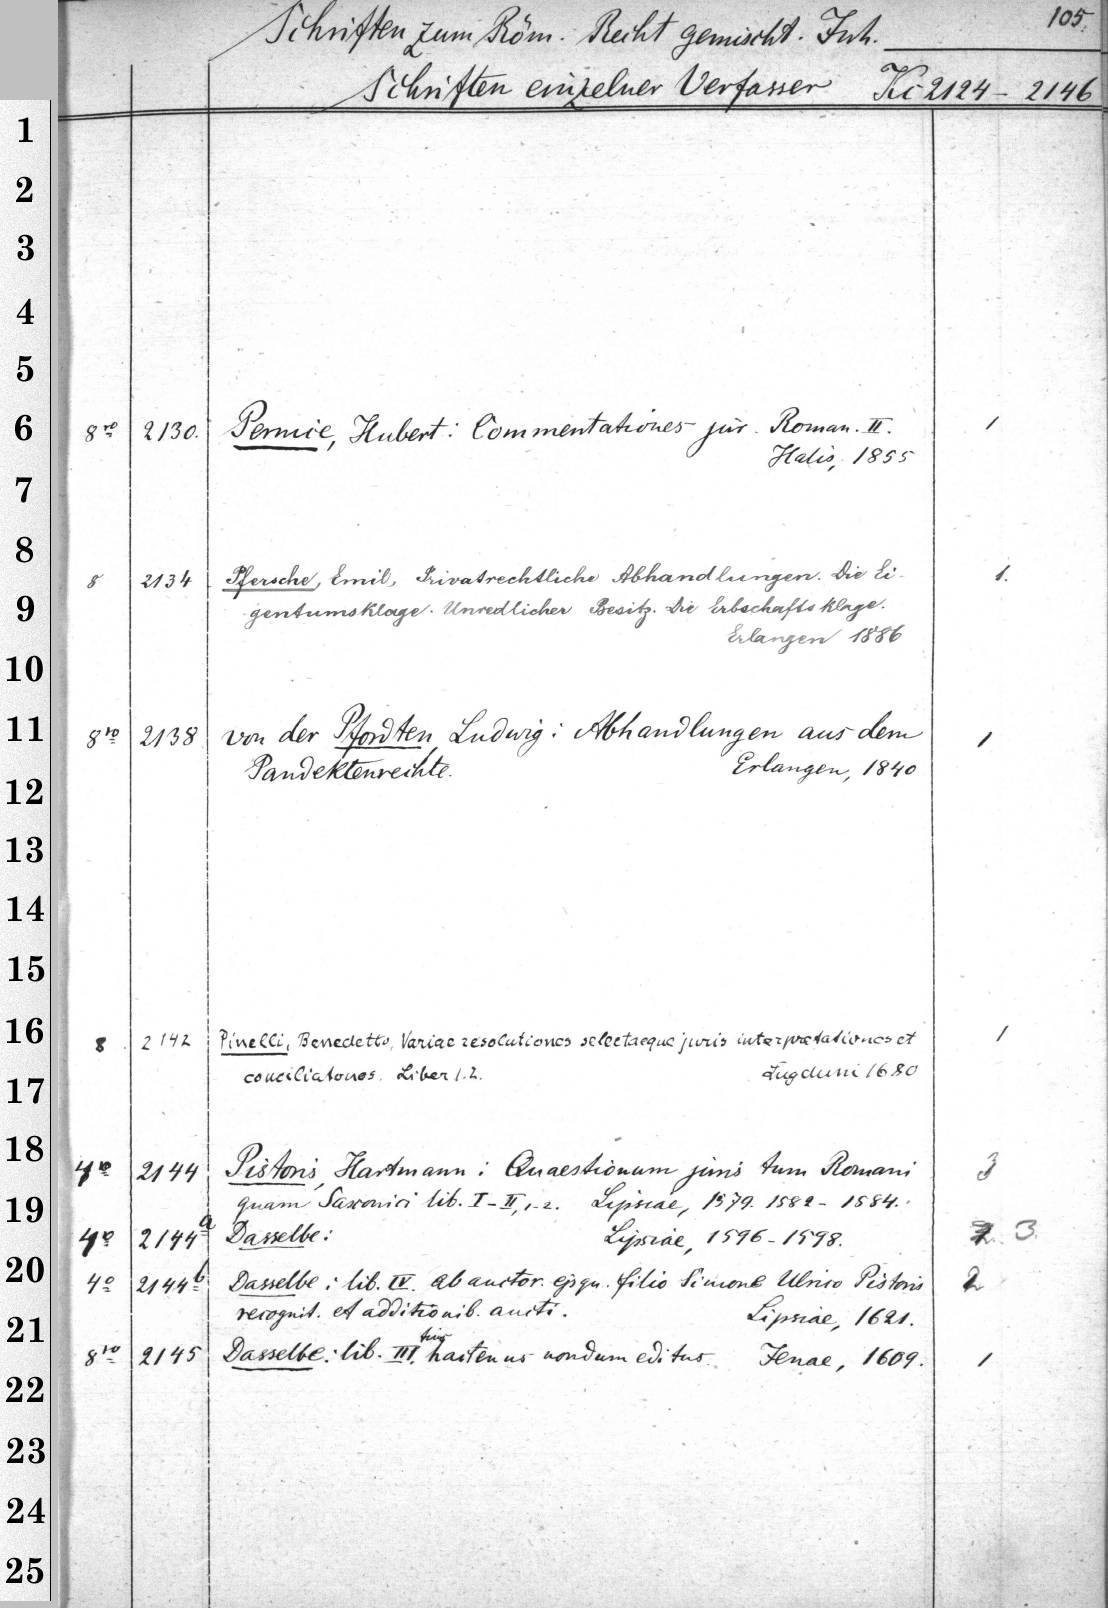 105.
Schriften zum Röm. Recht gemischt. Inh.
Schriften einzelner Verfasser Kc 2124 - 2146
1
2
3
4
5
6 8ro 2130. Pernice, Hubert: Commentationes jur. Roman. II. 1
Halis, 1855
7
8
8 2134 Pfersche, Emil, Privatrechtliche Abhandlungen. Die Ei-
1.
9 gentumsklage. Unredlicher Besitz. Die Erbschaftsklage.
Erlangen 1886
10
11 8ro 2138 von der Pfordten, Ludwig: Abhandlungen aus dem 1
Pandektenrechte. Erlangen, 1840
12
13
14
15
16 8 2142 Pinelli, Benedetto, Variae resolutiones selectaeque juris interpretationes et 1
conciliationes. Liber 1.2. Lugduni 1680
17
18 4o 2144 Pistoris, Hartmann: Quaestionum juris tum Romani 3
19 quam Saxonici lib. I-II, 1-2. Lipsiae, 1579. 1582-1584.
4o 2144a Dasselbe: Lipsiae, 1596-1598. 3.
20 4o 2144b Dasselbe: lib. IV. ab auctor. ejsqu. filio Simone Ulrico Pistoris 2
recognit. et additionib. aucti. Lipsiae, 1621.
21
8ro 2145 Dasselbe: lib. III. hactenus nondum editus. Jenae, 1609. 1
22
23
24
25